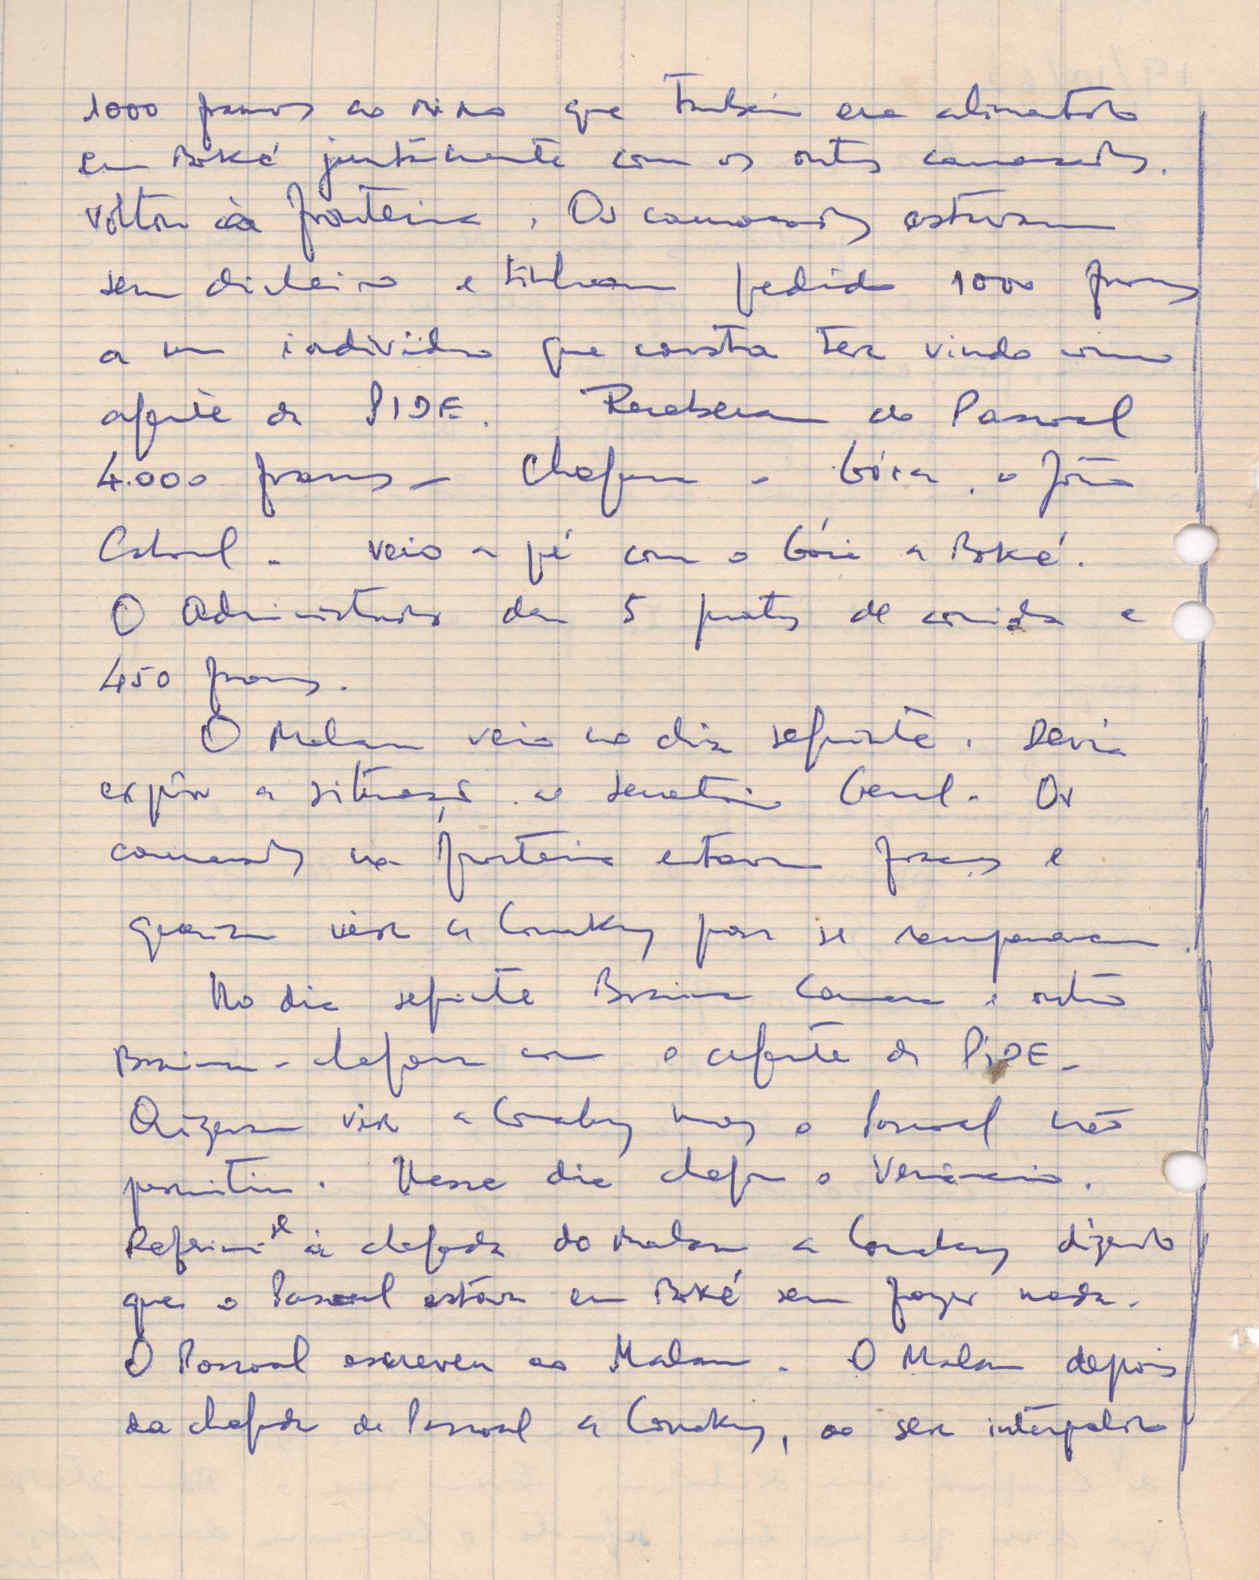 1000 francos ao Nino que também era alimentado
em Boké juntamente com os outros camaradas.
Voltou à fronteira. Os camaradas estavam
sem dinheiro e tinham pedido 1000 francos
a um indivíduo que consta ter vindo como
agente da PIDE. Receberam do Pascoal
4.000 francos - Chegaram o Bóia, o João
Cabral - veio a pé com o Bóia a Boké.
O Administrador deu 5 pratos de comida e
450 francos.
O Malam veio no dia seguinte. Devia
expôr a situação ao Secretário Geral. Os
camaradas na fronteira estavam fracos e
queriam vir a Conakry para se recuperarem.
No dia seguinte Braima Camara e outro
Braima - chegaram com o agente da PIDE -
Quizeram vir a Conakry mas o Pascoal não
permitiu. Nesse dia chegou o Venâncio.
Referiu-se à chegada do Malam a Conakry dizendo
que o Pascoal estava em Boké sem fazer nada.
O Pascoal escreveu ao Malam. O Malam depois
da chegada de Pascoal a Conakry, ao ser interpelado